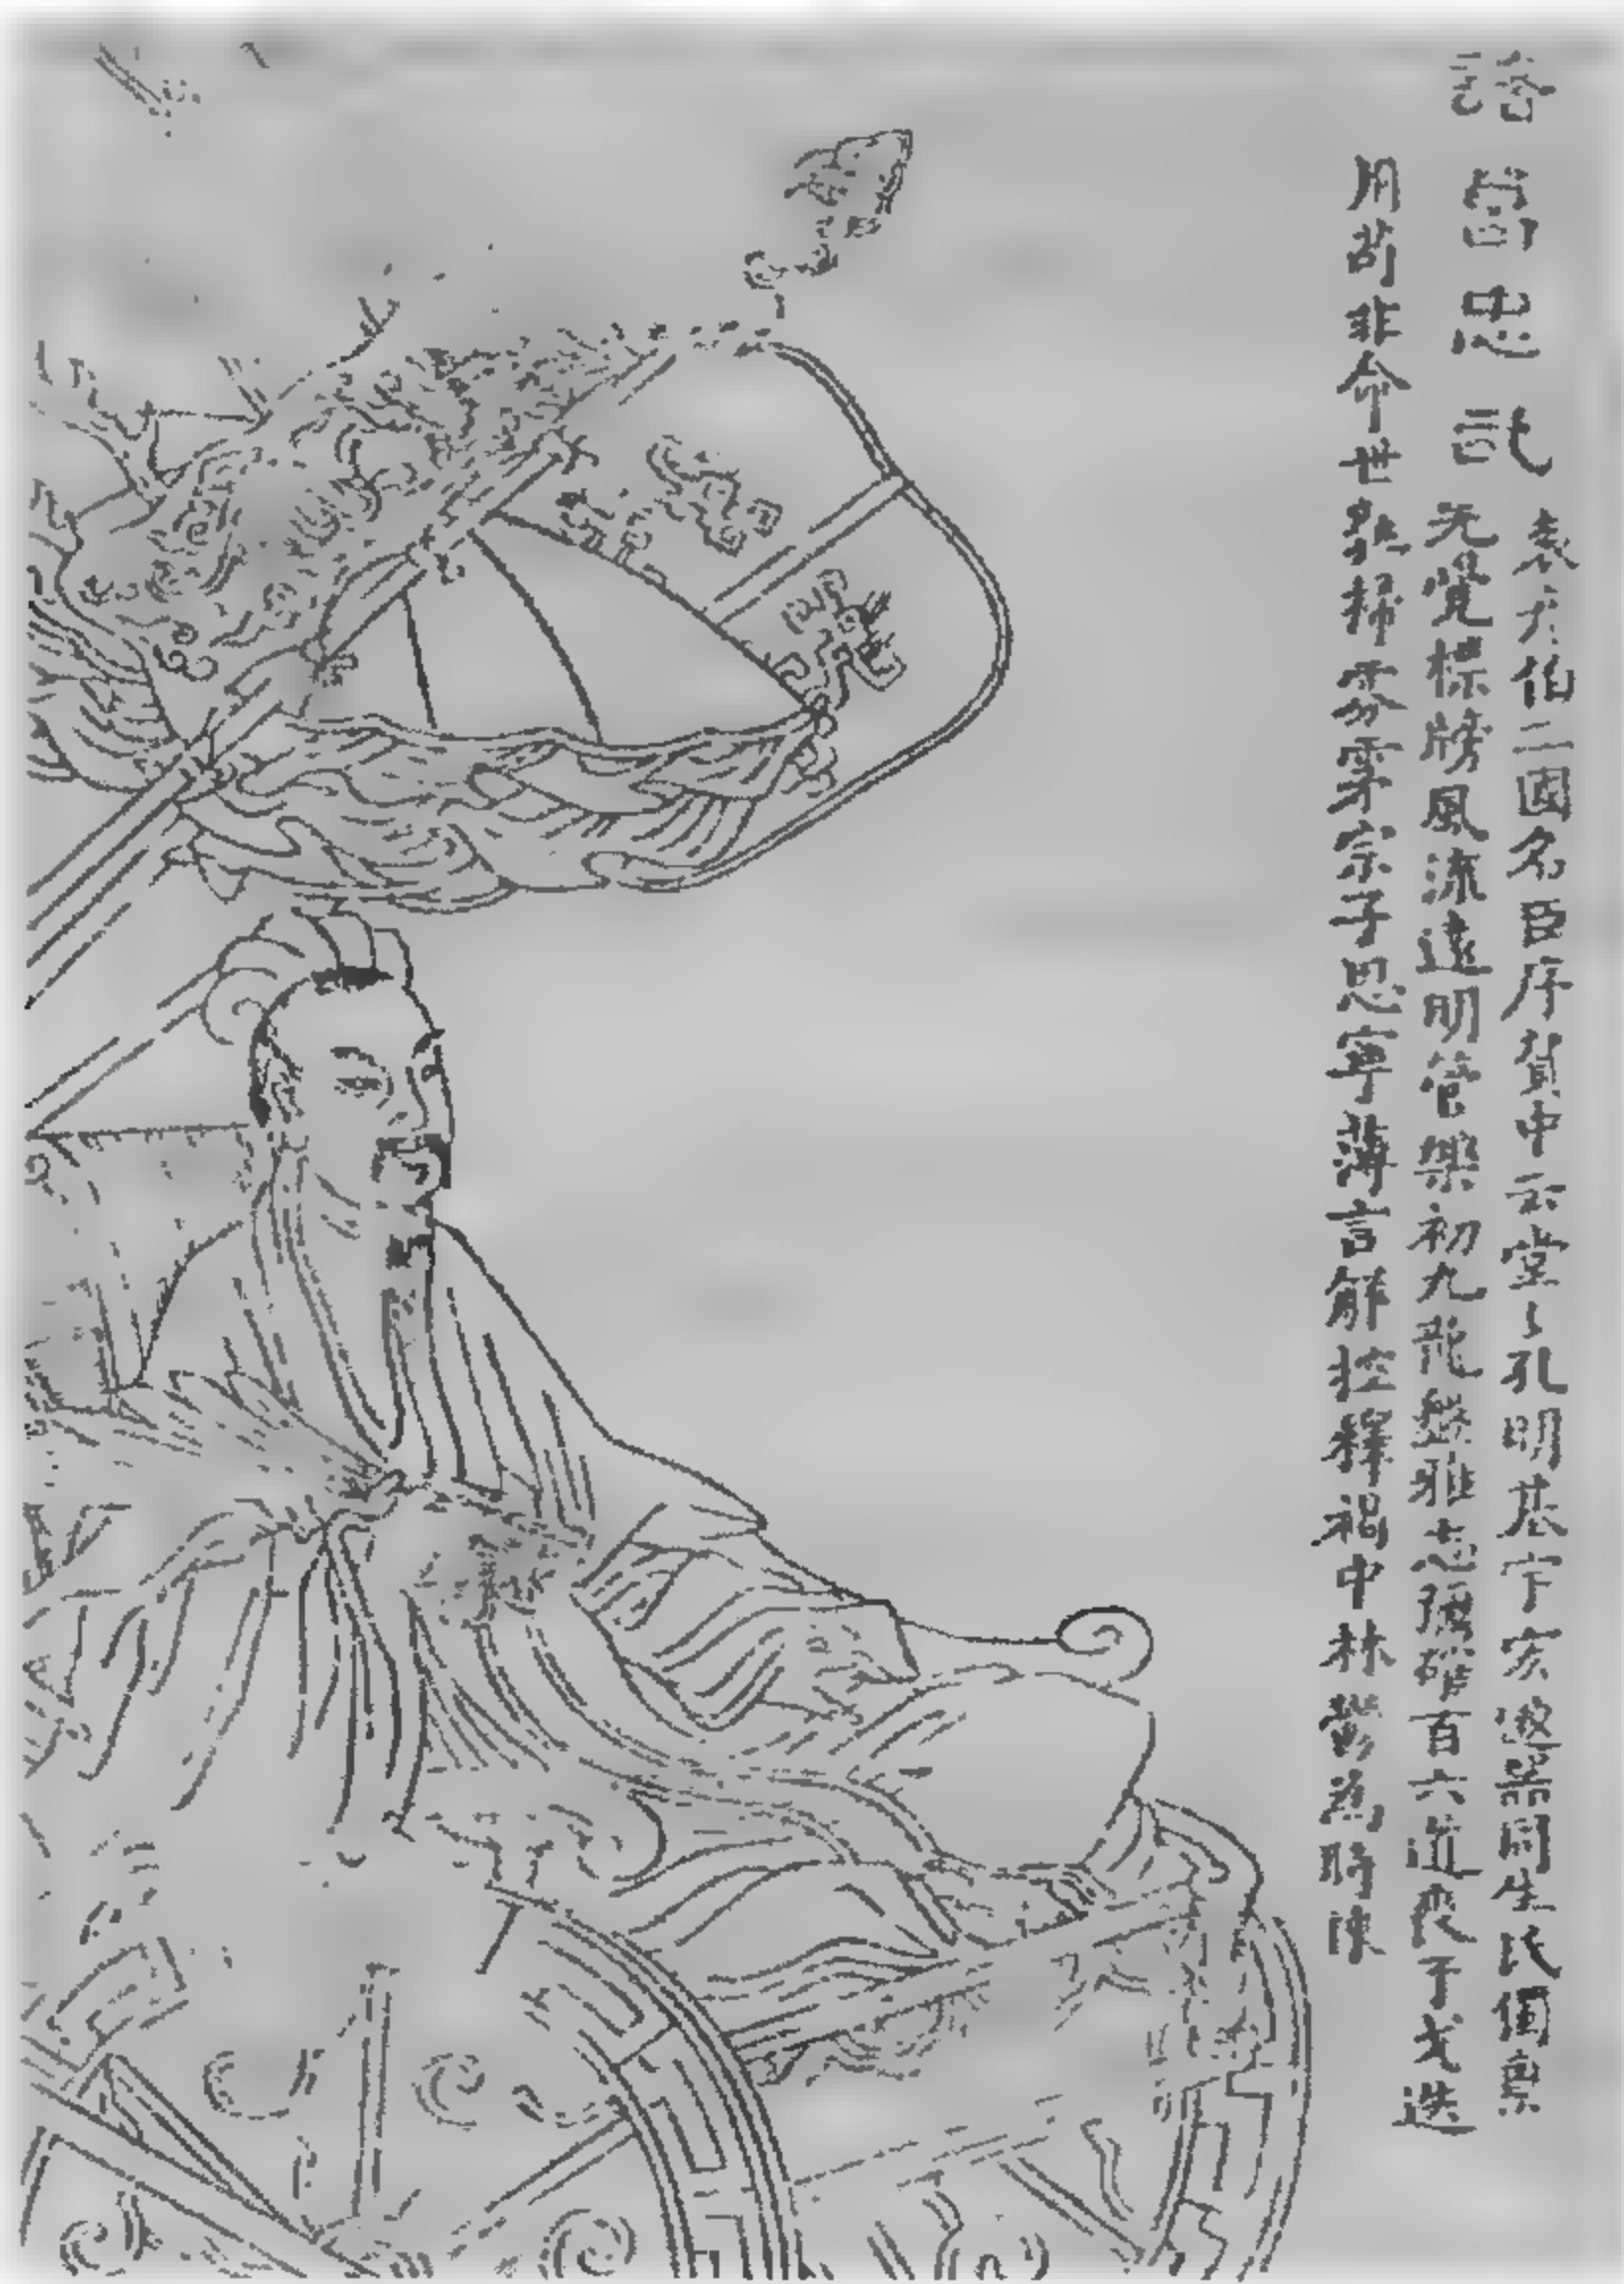 忠
袁彦伯二國名臣序賛中云堂〻孔明基宇宏邈器同生民獨稟
先覺標牓風流遠明管樂初九龍盤雅志彌確百六道喪干戈迭
用苟非命世孰掃雰雺宗子思寧薄言解控釋褐中林鬱為時棟